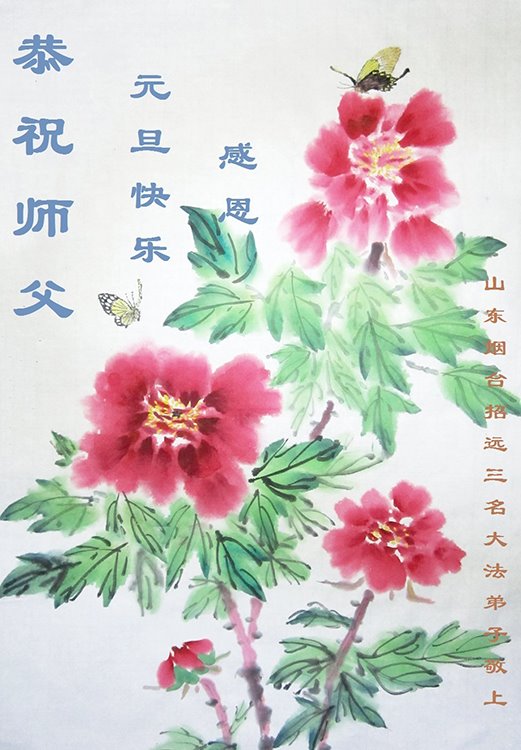 恭祝师父
元旦快乐
感恩
山东烟台招远三名大法弟子敬上